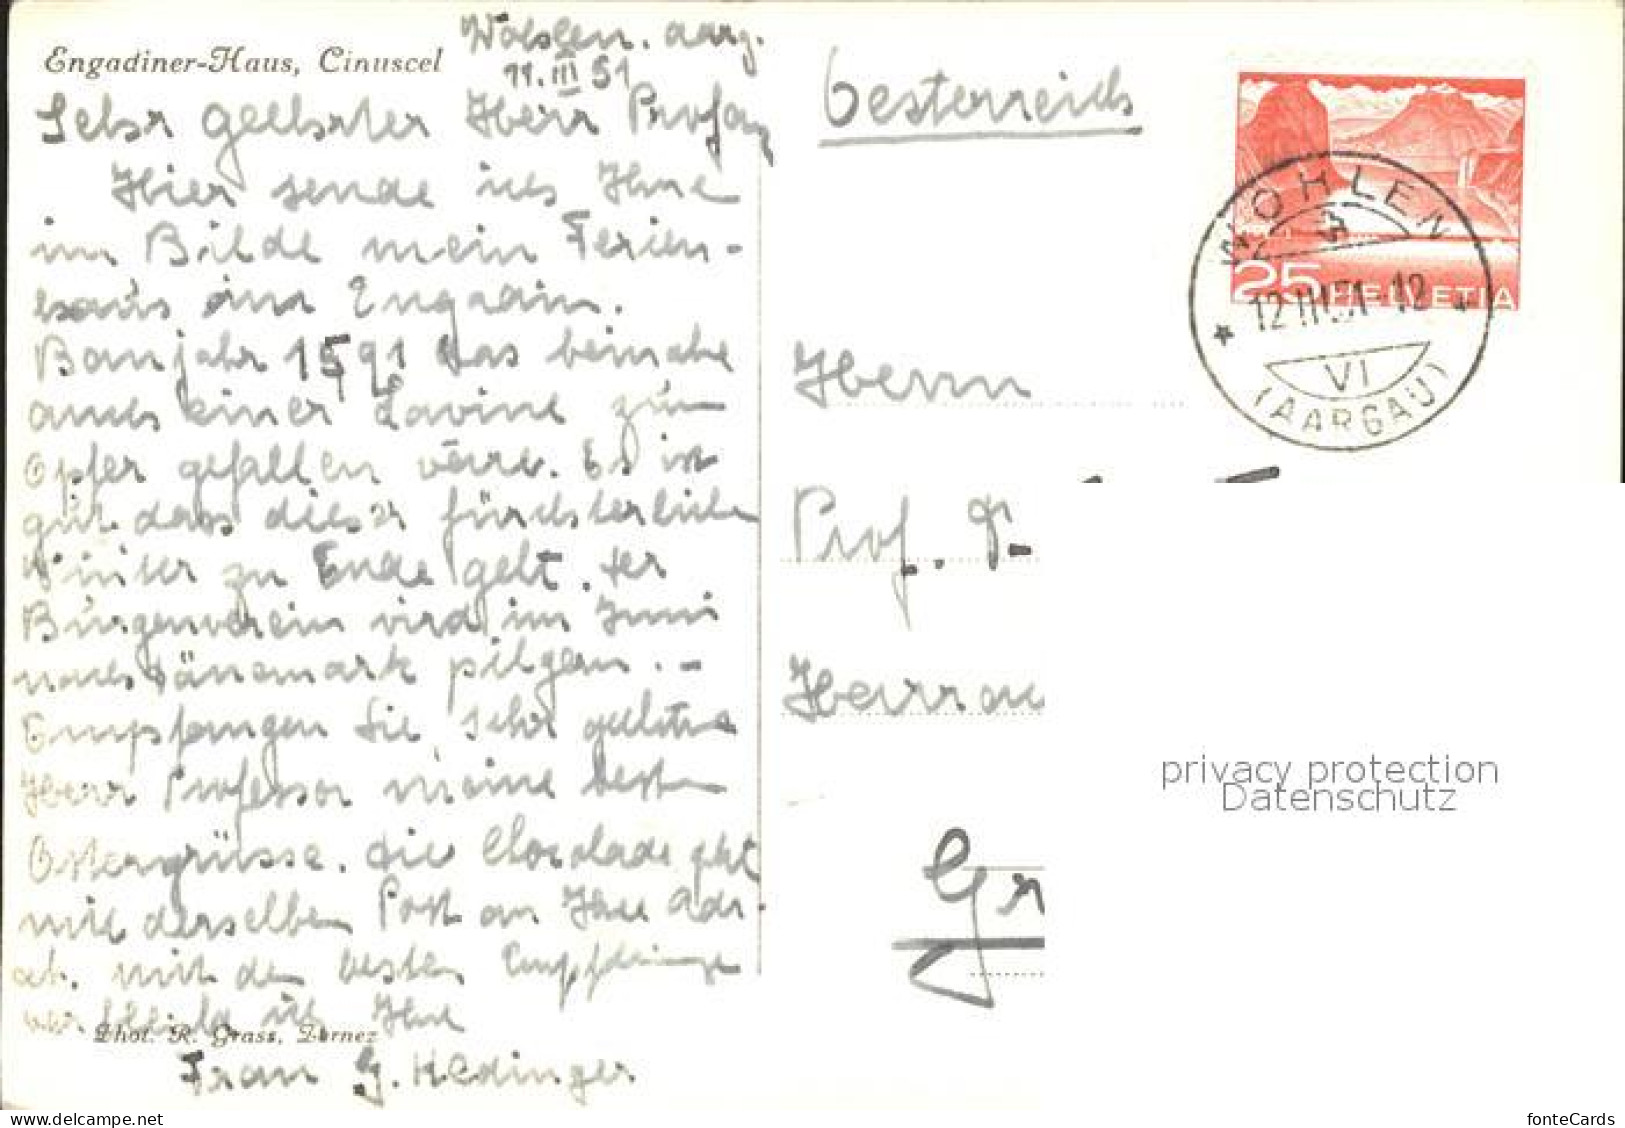 Engadiner-Haus, Cinuscel
Wohlen. Aarg.
11.III 51
Sehr geehrter Herr Profess
Hier sende ich Ihne
im Bilde mein Ferien-
haus im Engadin.
Baujahr 1591 das beinahe
auch einer Lavine zum
Opfer gefallen wäre. Es ist
gut dass dieser fürchterliche
Winter zu Ende geht. der
Burgenverein wird im Juni
nach Dänemark pilgern. -
Empfangen Sie, sehr geehrte
Herr Professor meine besten
Ostergrüsse. die Chocolade geht
mit derselben Post an Ihre Adr.
ab. mit den besten
ich Ihre
Phot. R. Grass, Zernez
Frau G. Hedinger
Oesterreich
WOHLEN
12.III.51-12
VI
(AARGAU)
25 HELVETIA
Herrn
Prof. Dr
Gr
privacy protection
Datenschutz
fonteCards